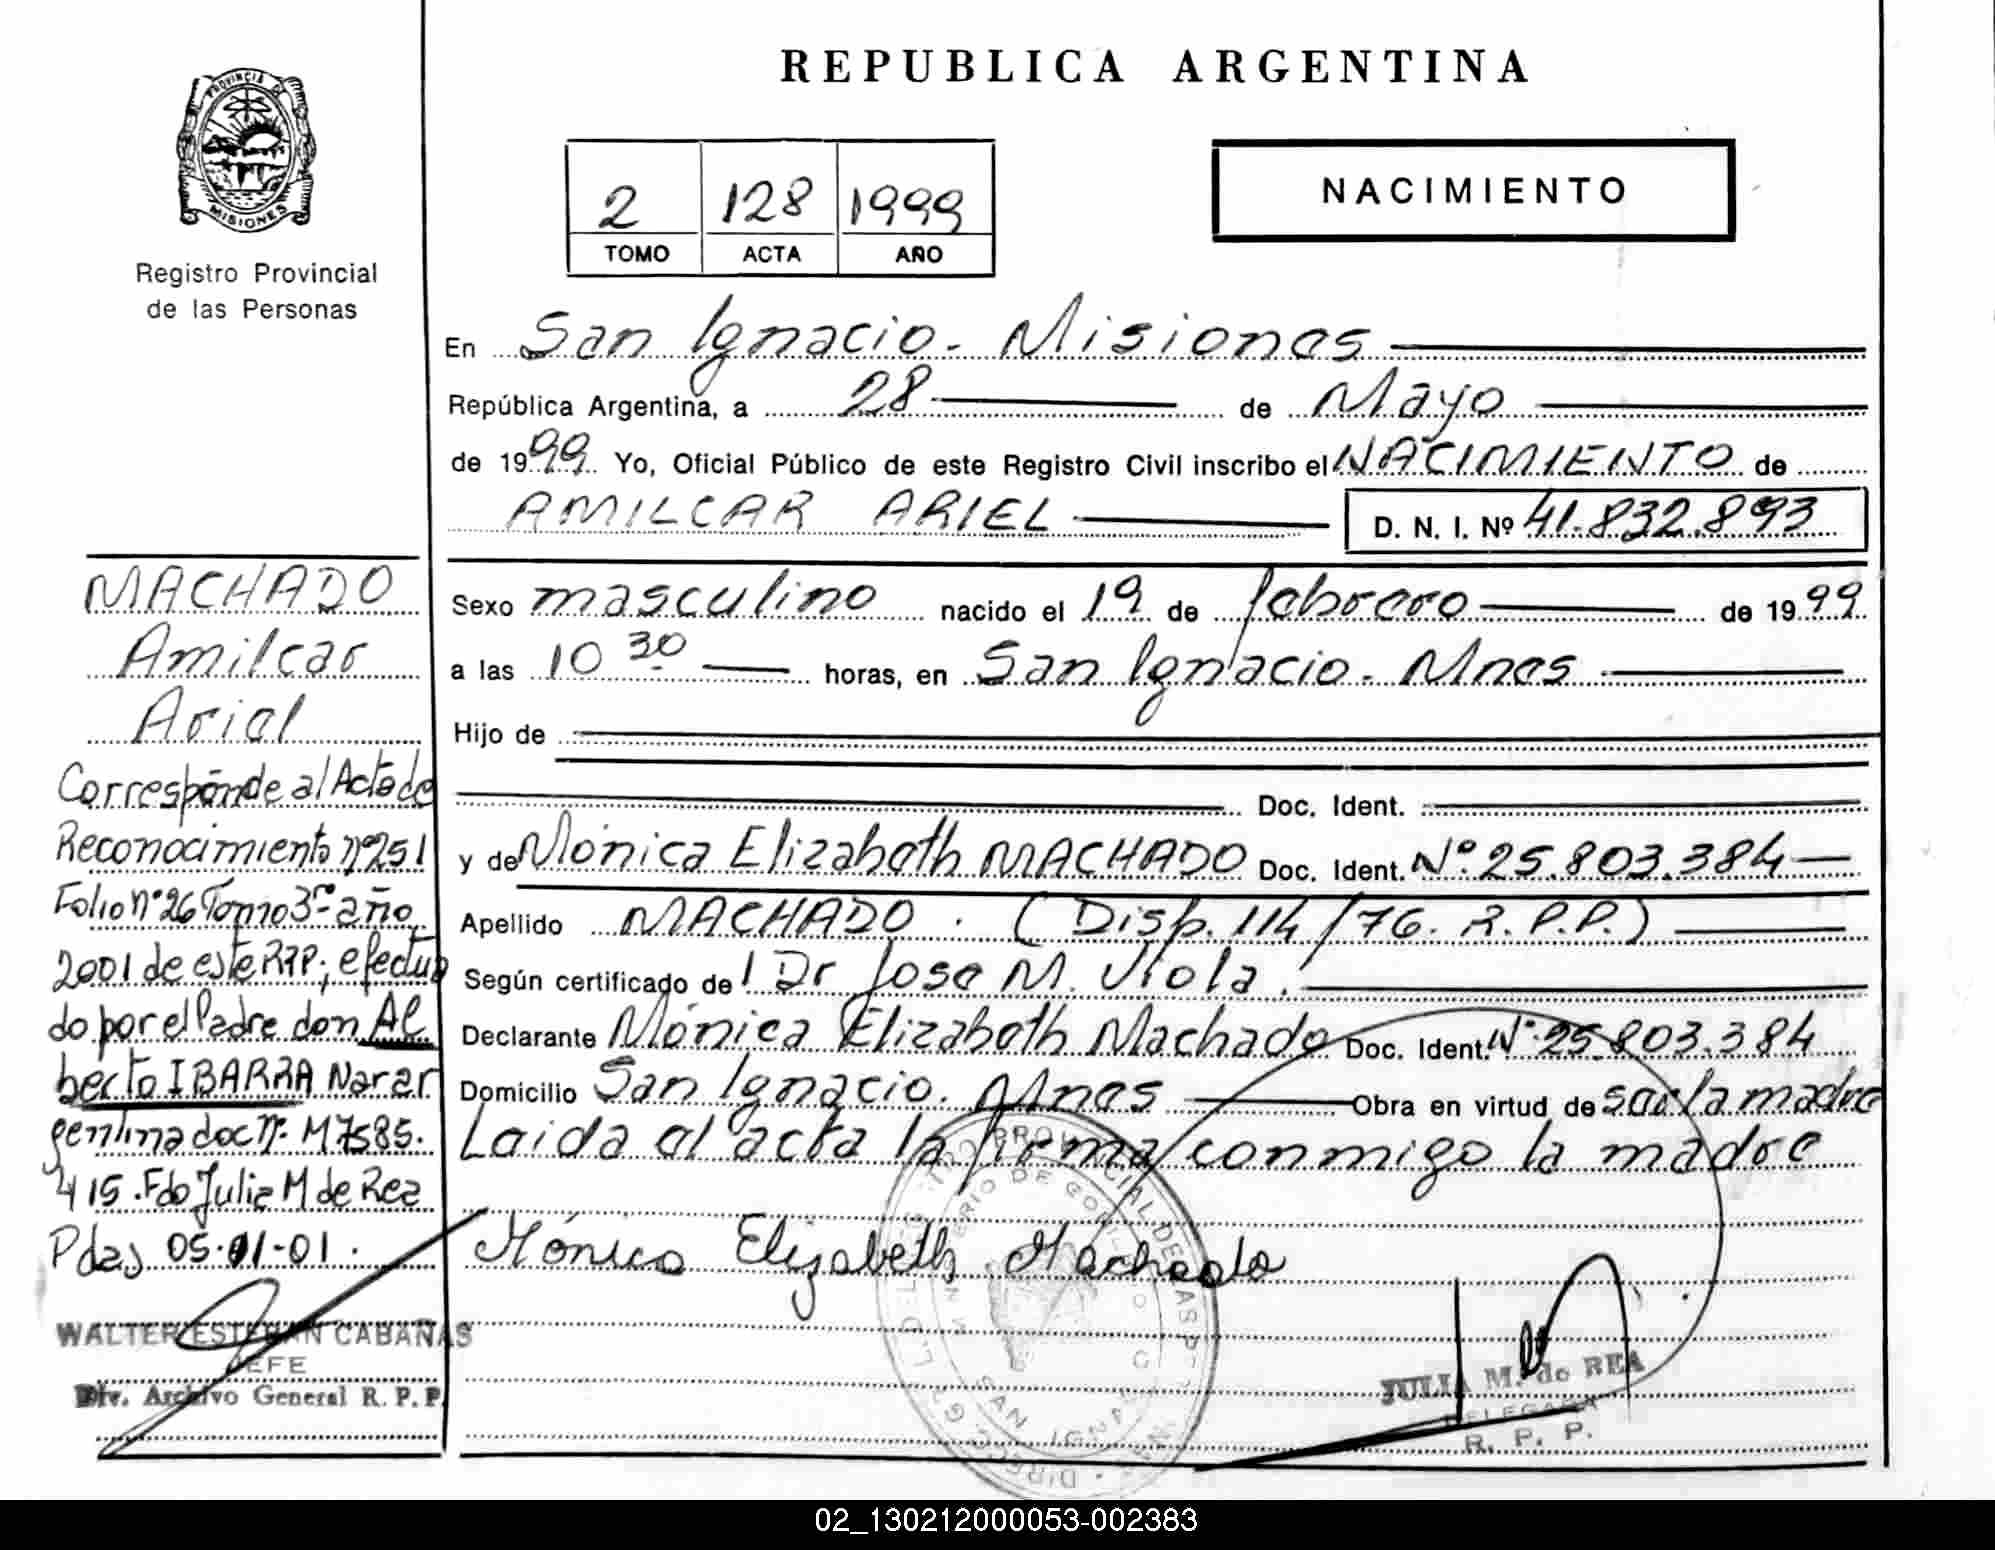 REPUBLICA ARGENTINA
PROVINCIA DE
MISIONES
Registro Provincial
de las Personas
2 128 1999
TOMO ACTA AÑO
NACIMIENTO
En San Ignacio - Misiones
República Argentina, a 28 de Mayo
de 1999. Yo, Oficial Público de este Registro Civil inscribo el NACIMIENTO de
AMILCAR ARIEL D. N. I. Nº 41.832.893
Sexo masculino nacido el 19 de febrero de 1999
a las 10 30 horas, en San Ignacio - Mnes
Hijo de
Doc. Ident.
y de Mónica Elizabeth MACHADO Doc. Ident. Nº 25.803.384
Apellido MACHADO . (Disp. 114/76. R.P.P.)
Según certificado de Dr Jose M. Viola .
Declarante Mónica Elizabeth Machado Doc. Ident. Nº 25.803.384
Domicilio San Ignacio. Mnes Obra en virtud de ser la madre
Leida al acta la firma conmigo la madre
Mónica Elizabeth Machado
JULIA M. de REA
DELEGADA
R. P. P.
MACHADO
Amilcar
Ariel
Corresponde al Acta de
Reconocimiento nº 251
Folio nº 26 Tomo 3º año
2001 de este RPP; efectua
do por el Padre don Al
berto IBARRA Nac ar
gentina doc Nº M7585.
415. Fdo Julia M de Rea
Pdas 05-01-01.
WALTER ESTEBAN CABAÑAS
JEFE
Div. Archivo General R. P. P.
SAN IGNACIO
02_130212000053-002383